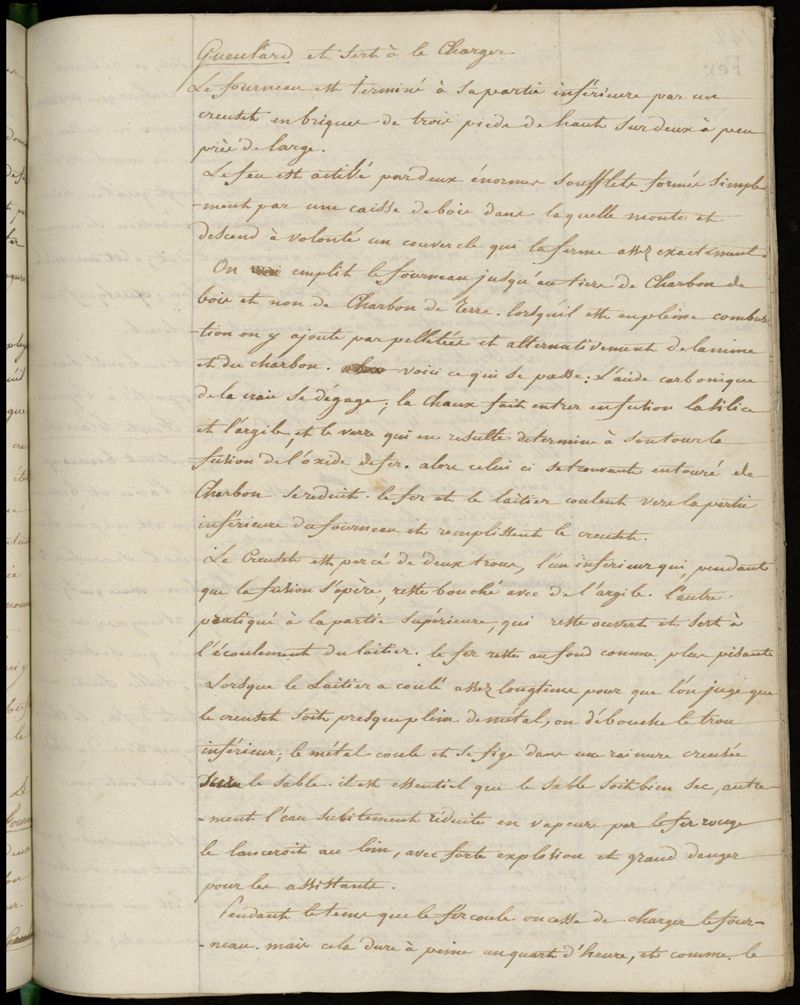 Gueulard et sert à le Charger
Le fourneau est terminé à sa partie inférieure par un
creuset en briques de trois pieds de haut sur deux à peu
près de large.
Le feu est activé par deux énormes soufflets formés simple
-ment par une caisse de bois dans laquelle monte et
descend à volonté un couvercle qui la ferme assez exactement.
On emplit le fourneau jusqu'au tiers de Charbon de
bois et non de Charbon de Terre. lorsqu'il est en pleine combus-
-tion on y ajoute par pelletées et alternativement de la mine
et du charbon. voici ce qui se passe : L'acide carbonique
de la craie se dégage ; la Chaux fait entrer en fusion la silice
et l'argile, et le verre qui en resulte determine à son tour la
fusion de l'oxide de fer. alors celui ci se trouvant entouré de
Charbon se reduit. le fer et le laitier coulent vers la partie
inférieure du fourneau et remplissent le creuset.
Le Creuset est percé de deux trous, l'un inférieur qui, pendant
que la fusion s'opère, reste bouché avec de l'argile. l'autre
pratiqué à la partie supérieure, qui reste ouvert et sert à
l'écoulement du laitier. le fer reste au fond comme plus pésante
Lorsque le Laitier a coulé assez longtems pour que l'on juge que
le creuset soit presque plein de métal, on débouche le trou
inférieur ; le métal coule et se fige dans une rainure creusée
dans le sable. il est essentiel que le sable soit bien sec, autre
-ment l'eau subitement réduite en vapeurs par le fer rouge
le lanceroit au loin, avec forte explosion et grand danger
pour les assistants.
Pendant le tems que le fer coule on cesse de charger le four-
-neau. mais cela dure à peine un quart d'heure, et comme le